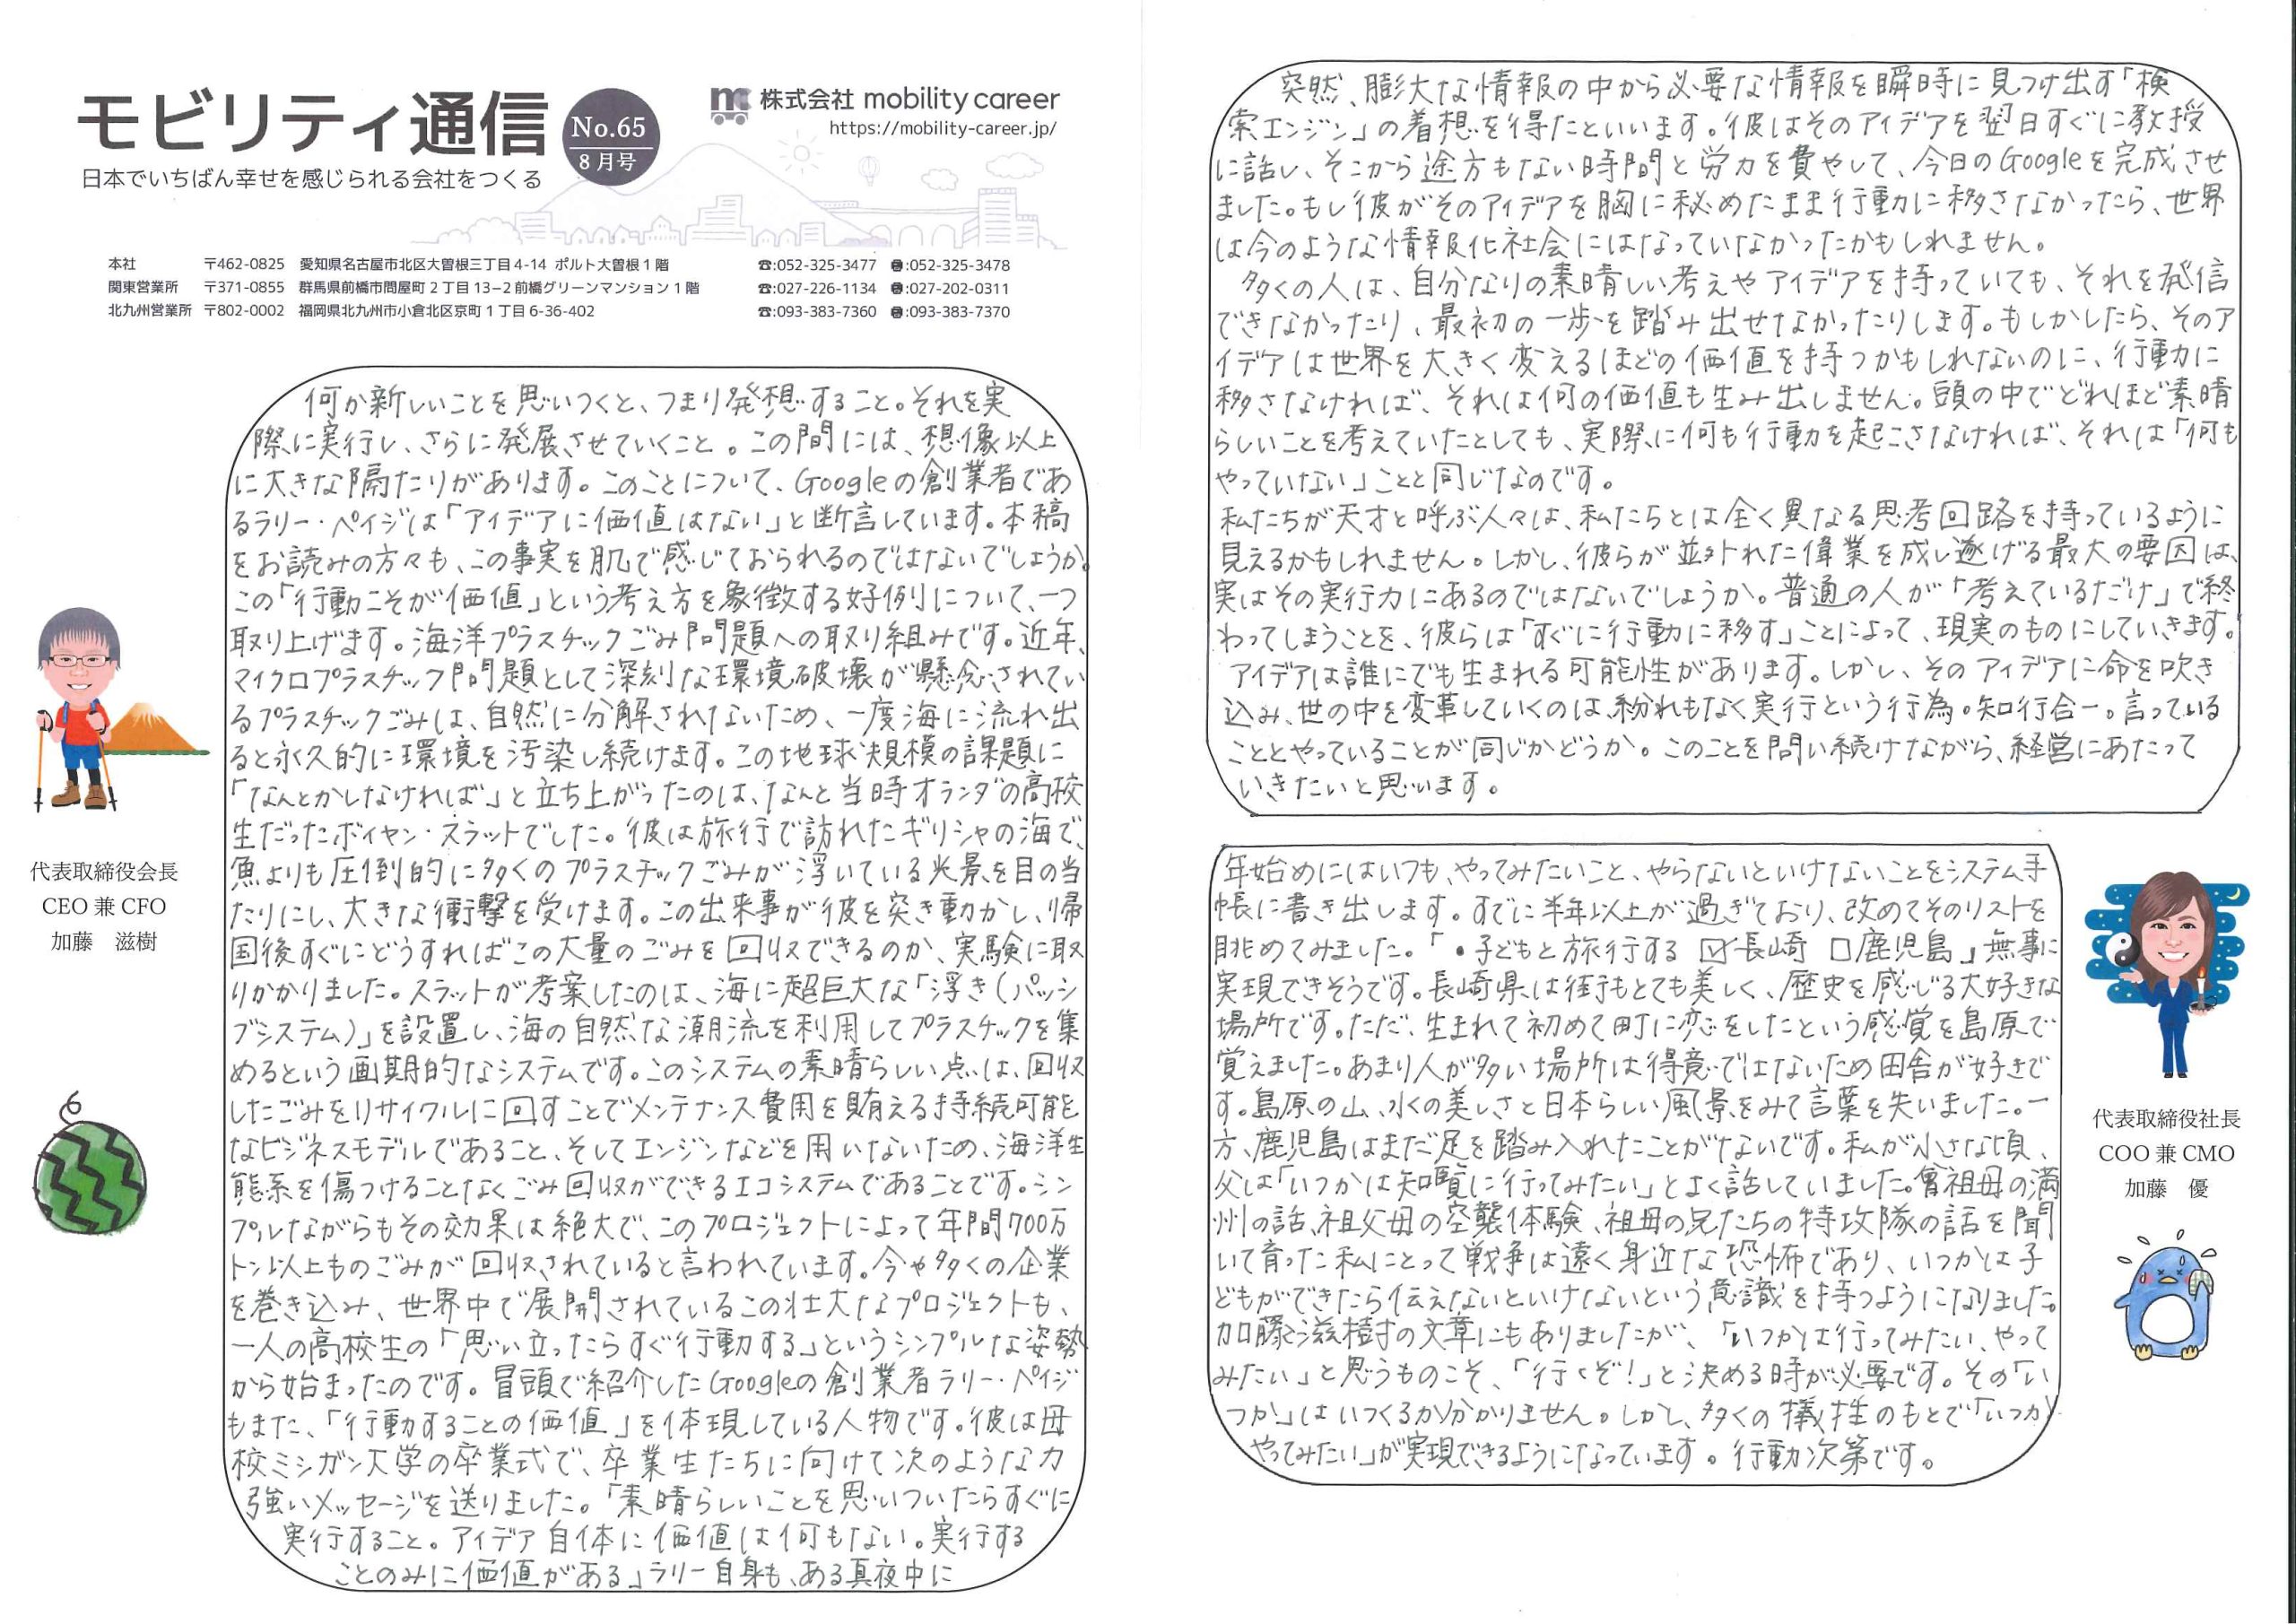 モビリティ通信
No.65
8月号
日本でいちばん幸せを感じられる会社をつくる
mc 株式会社 mobility career
https://mobility-career.jp/
本社 〒462-0825 愛知県名古屋市北区大曽根三丁目4-14 ポルト大曽根1階 ☎:052-325-3477 :052-325-3478
関東営業所 〒371-0855 群馬県前橋市問屋町2丁目13−2前橋グリーンマンション1階 ☎:027-226-1134 :027-202-0311
北九州営業所 〒802-0002 福岡県北九州市小倉北区京町1丁目6-36-402 ☎:093-383-7360 :093-383-7370
何か新しいことを思いつくと、つまり発想すること。それを実
際に実行し、さらに発展させていくこと。この間には、想像以上
に大きな隔たりがあります。このことについて、Googleの創業者であ
るラリー・ペイジは「アイデアに価値はない」と断言しています。本稿
をお読みの方々も、この事実を肌で感じておられるのではないでしょうか。
この「行動こそが価値」という考え方を象徴する好例について、一つ
取り上げます。海洋プラスチックごみ問題への取り組みです。近年、
マイクロプラスチック問題として深刻な環境破壊が懸念されてい
るプラスチックごみは、自然に分解されないため、一度海に流れ出
ると永久的に環境を汚染し続けます。この地球規模の課題に
「なんとかしなければ」と立ち上がったのは、なんと当時オランダの高校
生だったボイヤン・スラットでした。彼は旅行で訪れたギリシャの海で、
魚よりも圧倒的に多くのプラスチックごみが浮いている光景を目の当
たりにし、大きな衝撃を受けます。この出来事が彼を突き動かし、帰
国後すぐにどうすればこの大量のごみを回収できるのか、実験に取
りかかりました。スラットが考案したのは、海に超巨大な「浮き(パッシ
ブシステム)」を設置し、海の自然な潮流を利用してプラスチックを集
めるという画期的なシステムです。このシステムの素晴らしい点は、回収
したごみをリサイクルに回すことでメンテナンス費用を賄える持続可能
なビジネスモデルであること、そしてエンジンなどを用いないため、海洋生
態系を傷つけることなくごみ回収ができるエコシステムであることです。シン
プルながらもその効果は絶大で、このプロジェクトによって年間700万
トン以上ものごみが回収されていると言われています。今や多くの企業
を巻き込み、世界中で展開されているこの壮大なプロジェクトも、
一人の高校生の「思い立ったらすぐ行動する」というシンプルな姿勢
から始まったのです。冒頭で紹介したGoogleの創業者ラリー・ペイジ
もまた、「行動することの価値」を体現している人物です。彼は母
校ミシガン大学の卒業式で、卒業生たちに向けて次のような力
強いメッセージを送りました。「素晴らしいことを思いついたらすぐに
実行すること。アイデア自体に価値は何もない。実行する
ことのみに価値がある」ラリー自身も、ある真夜中に
代表取締役会長
CEO 兼 CFO
加藤 滋樹
突然、膨大な情報の中から必要な情報を瞬時に見つけ出す「検
索エンジン」の着想を得たといいます。彼はそのアイデアを翌日すぐに教授
に話し、そこから途方もない時間と労力を費やして、今日のGoogleを完成させ
ました。もし彼がそのアイデアを胸に秘めたまま行動に移さなかったら、世界
は今のような情報化社会にはなっていなかったかもしれません。
多くの人は、自分なりの素晴しい考えやアイデアを持っていても、それを発信
できなかったり、最初の一歩を踏み出せなかったりします。もしかしたら、そのア
イデアは世界を大きく変えるほどの価値を持つかもしれないのに、行動に
移さなければ、それは何の価値も生み出しません。頭の中でどれほど素晴
らしいことを考えていたとしても、実際に何も行動を起こさなければ、それは「何も
やっていない」ことと同じなのです。
私たちが天才と呼ぶ人々は、私たちとは全く異なる思考回路を持っているように
見えるかもしれません。しかし、彼らが並外れた偉業を成し遂げる最大の要因は、
実はその実行力にあるのではないでしょうか。普通の人が「考えているだけ」で終
わってしまうことを、彼らは「すぐに行動に移す」ことによって、現実のものにしていきます。
アイデアは誰にでも生まれる可能性があります。しかし、そのアイデアに命を吹き
込み、世の中を変革していくのは、紛れもなく実行という行為。知行合一。言っている
こととやっていることが同じかどうか。このことを問い続けながら、経営にあたって
いきたいと思います。
年始めにはいつも、やってみたいこと、やらないといけないことをシステム手
帳に書き出します。すでに半年以上が過ぎており、改めてそのリストを
眺めてみました。「・子どもと旅行する ☑長崎 □鹿児島」無事に
実現できそうです。長崎県は街もとても美しく、歴史を感じる大好きな
場所です。ただ、生まれて初めて町に恋をしたという感覚を島原で
覚えました。あまり人が多い場所は得意ではないため田舎が好きで
す。島原の山、水の美しさと日本らしい風景をみて言葉を失いました。一
方、鹿児島はまだ足を踏み入れたことがないです。私が小さな頃、
父は「いつかは知覧に行ってみたい」とよく話していました。曾祖母の満
州の話、祖父母の空襲体験、祖母の兄たちの特攻隊の話を聞
いて育った私にとって戦争は遠く身近な恐怖であり、いつかは子
どもができたら伝えないといけないという意識を持つようになりました。
加藤滋樹の文章にもありましたが、「いつかは行ってみたい、やって
みたい」と思うものこそ、「行くぞ!」と決める時が必要です。その「い
つか」はいつくるか分かりません。しかし、多くの犠牲のもとで「いつか
やってみたい」が実現できるようになっています。行動次第です。
代表取締役社長
COO 兼 CMO
加藤 優